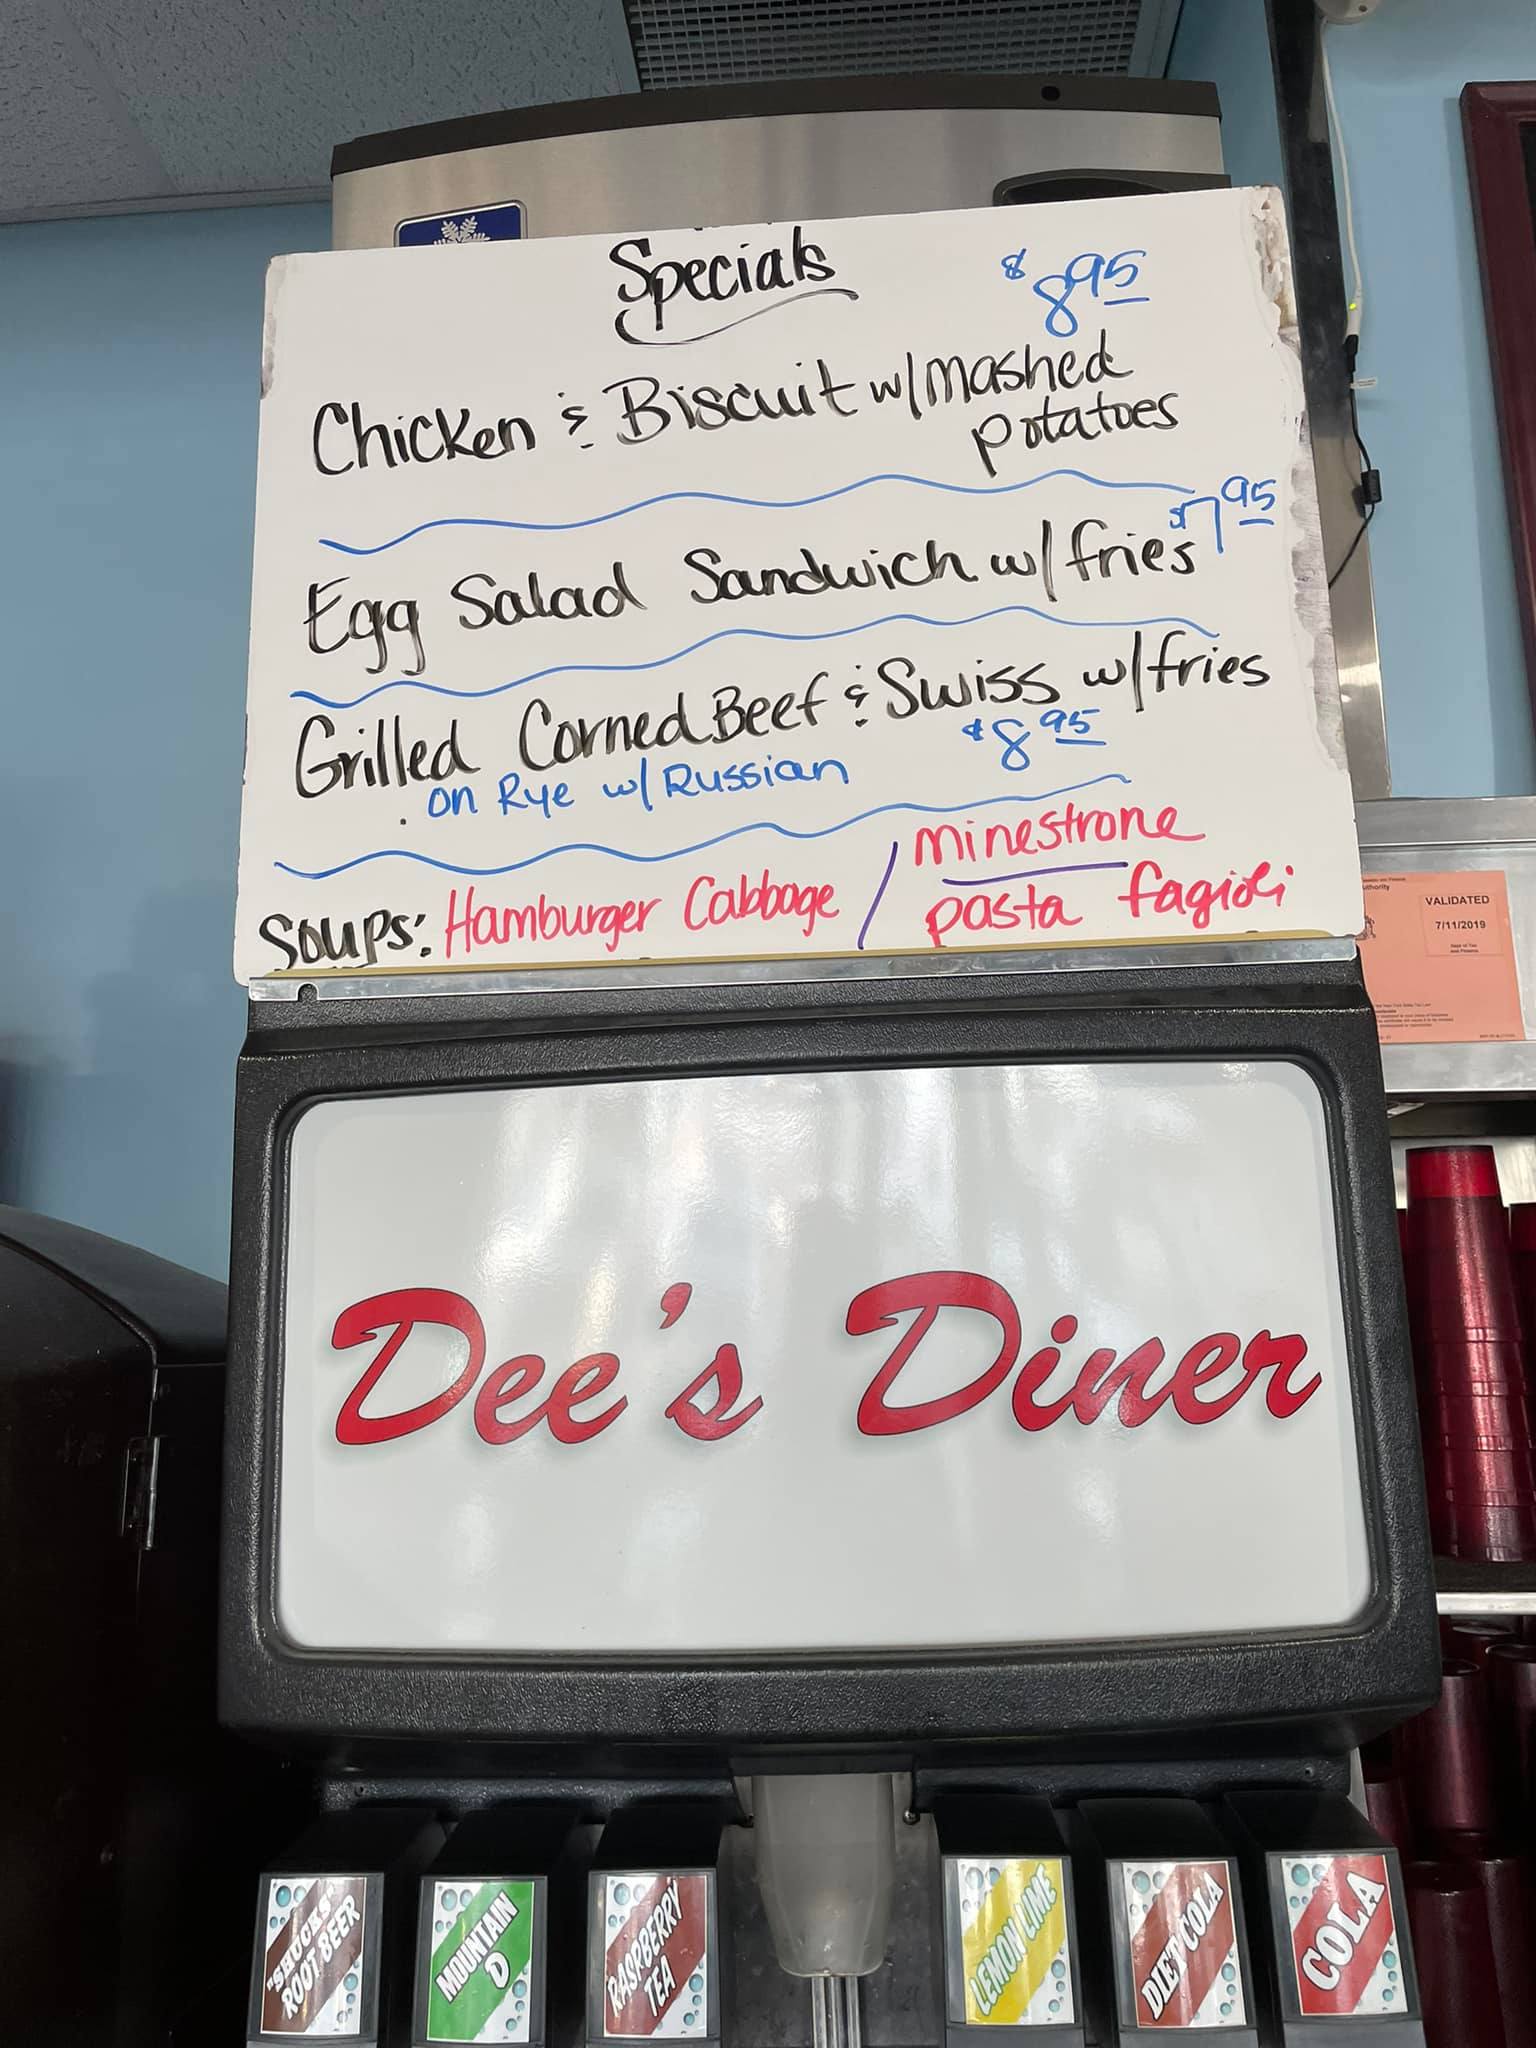 Specials
$8 95
Chicken & Biscuit w/ mashed
potatoes
$7 95
Egg Salad Sandwich w/ fries
Grilled Corned Beef & Swiss w/ fries
on Rye w/ Russian $8 95
Soups: Hamburger Cabbage / minestrone
pasta fagioli
VALIDATED
7/11/2019
Dee's Diner
"SHUCKS"
ROOT BEER
MOUNTAIN
D
RASPBERRY
TEA
LEMON LIME
DIET COLA
COLA